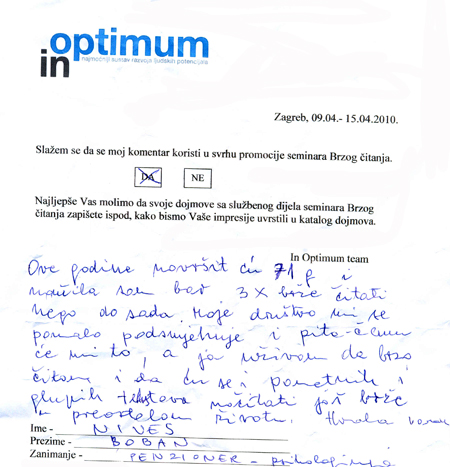 in optimum
najmoćniji sustav razvoja ljudskih potencijala
Zagreb, 09.04.- 15.04.2010.
Slažem se da se moj komentar koristi u svrhu promocije seminara Brzog čitanja.
DA NE
Najljepše Vas molimo da svoje dojmove sa službenog dijela seminara Brzog
čitanja zapišete ispod, kako bismo Vaše impresije uvrstili u katalog dojmova.
In Optimum team
Ove godine navršit ću 71 g i
naučila sam bar 3 X brže čitati
nego do sada. Moje društvo mi se
pomalo podsmjehuje i pita - čemu
će mi to, a ja uživam da brzo
čitam i da ću se i pametnih i
glupih tekstova načitati još brže
u preostalom životu. Hvala vam
Ime - NIVES
Prezime - BOBAN
Zanimanje - PENZIONER - psihologinja